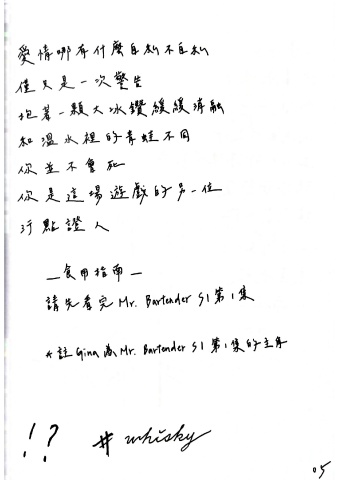 愛情哪有什麼自私不自私
僅只是一次警告
抱著一顆大冰鑽緩緩消融
和溫水裡的青蛙不同
你並不會死
你是這場遊戲的另一位
污點證人
—食用指南—
請先看完Mr. Bartender S1第1集
*註Gina為Mr. Bartender S1第1集的主角
!? #whisky
05